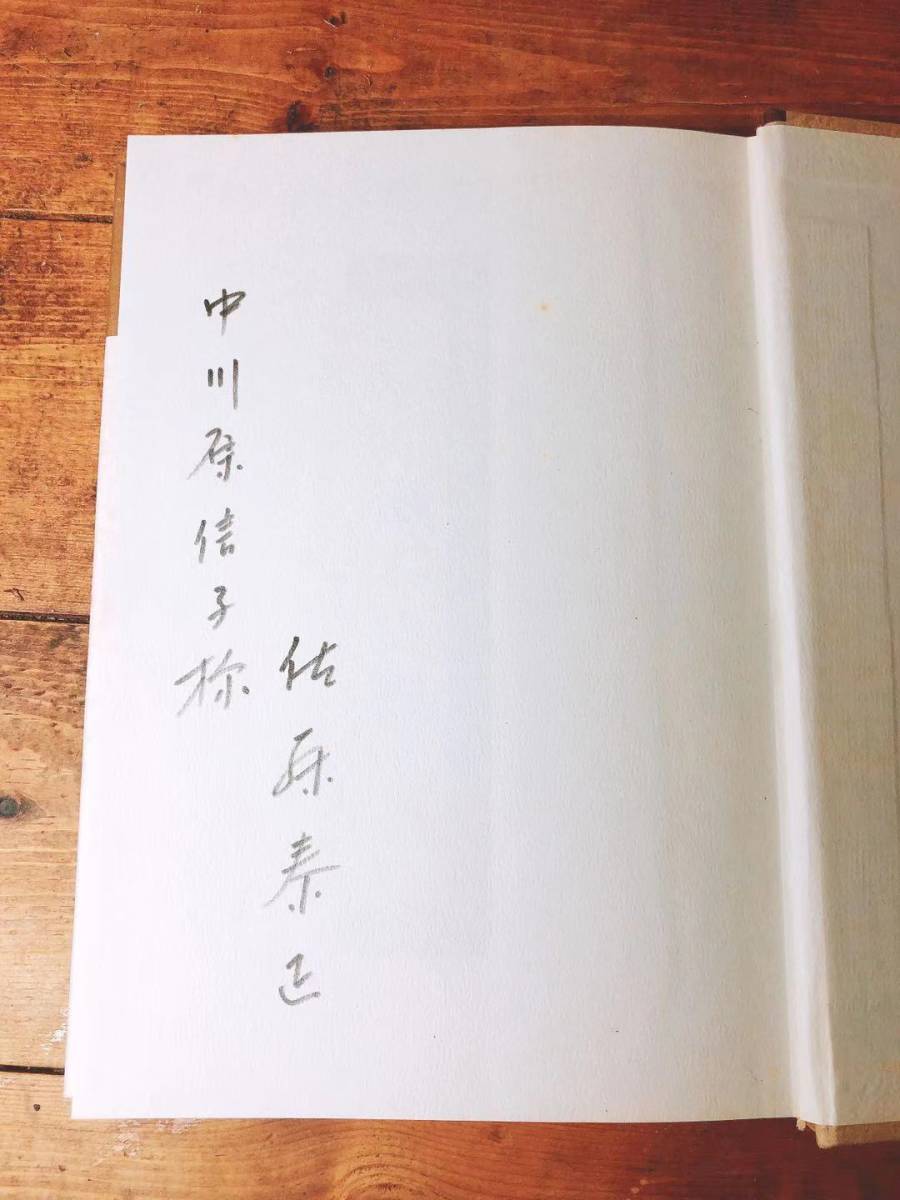 佐藤泰正
中川原信子様